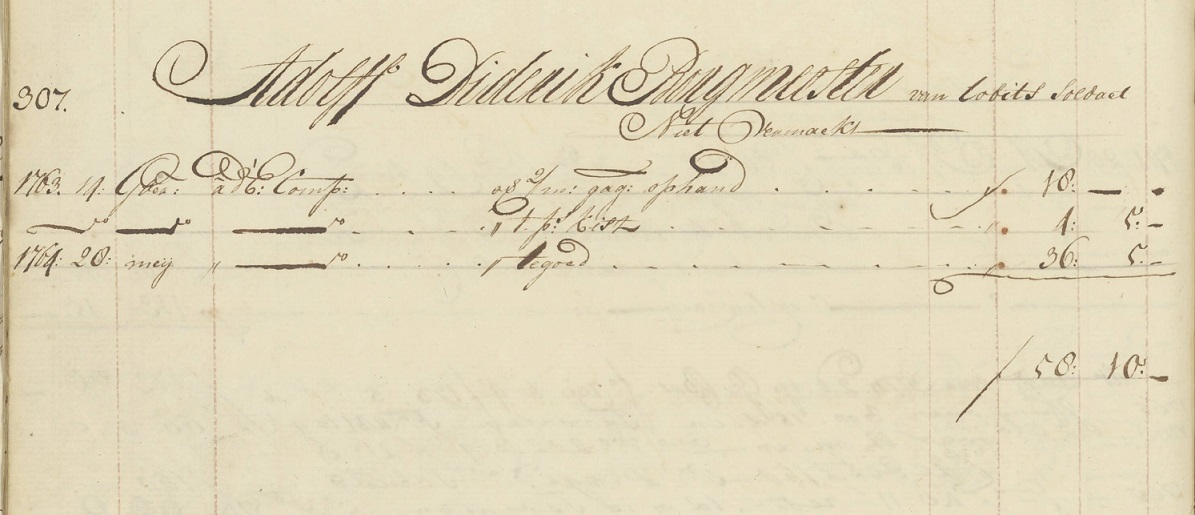 307. Adolff Diderik Burgmeester van Lobits Soldaat
Niet Vermackt
1763. 14: a d'E: Comp: . . . . op 2/m: gag: ophand . . . . ƒ. 18: — .
— do — do — do . . . . " 1. ps: kist . . . . 4: 5: -
1764: 28: mey " — do . . . . " tegoed . . . . 36: 5: -
ƒ 58: 10: -